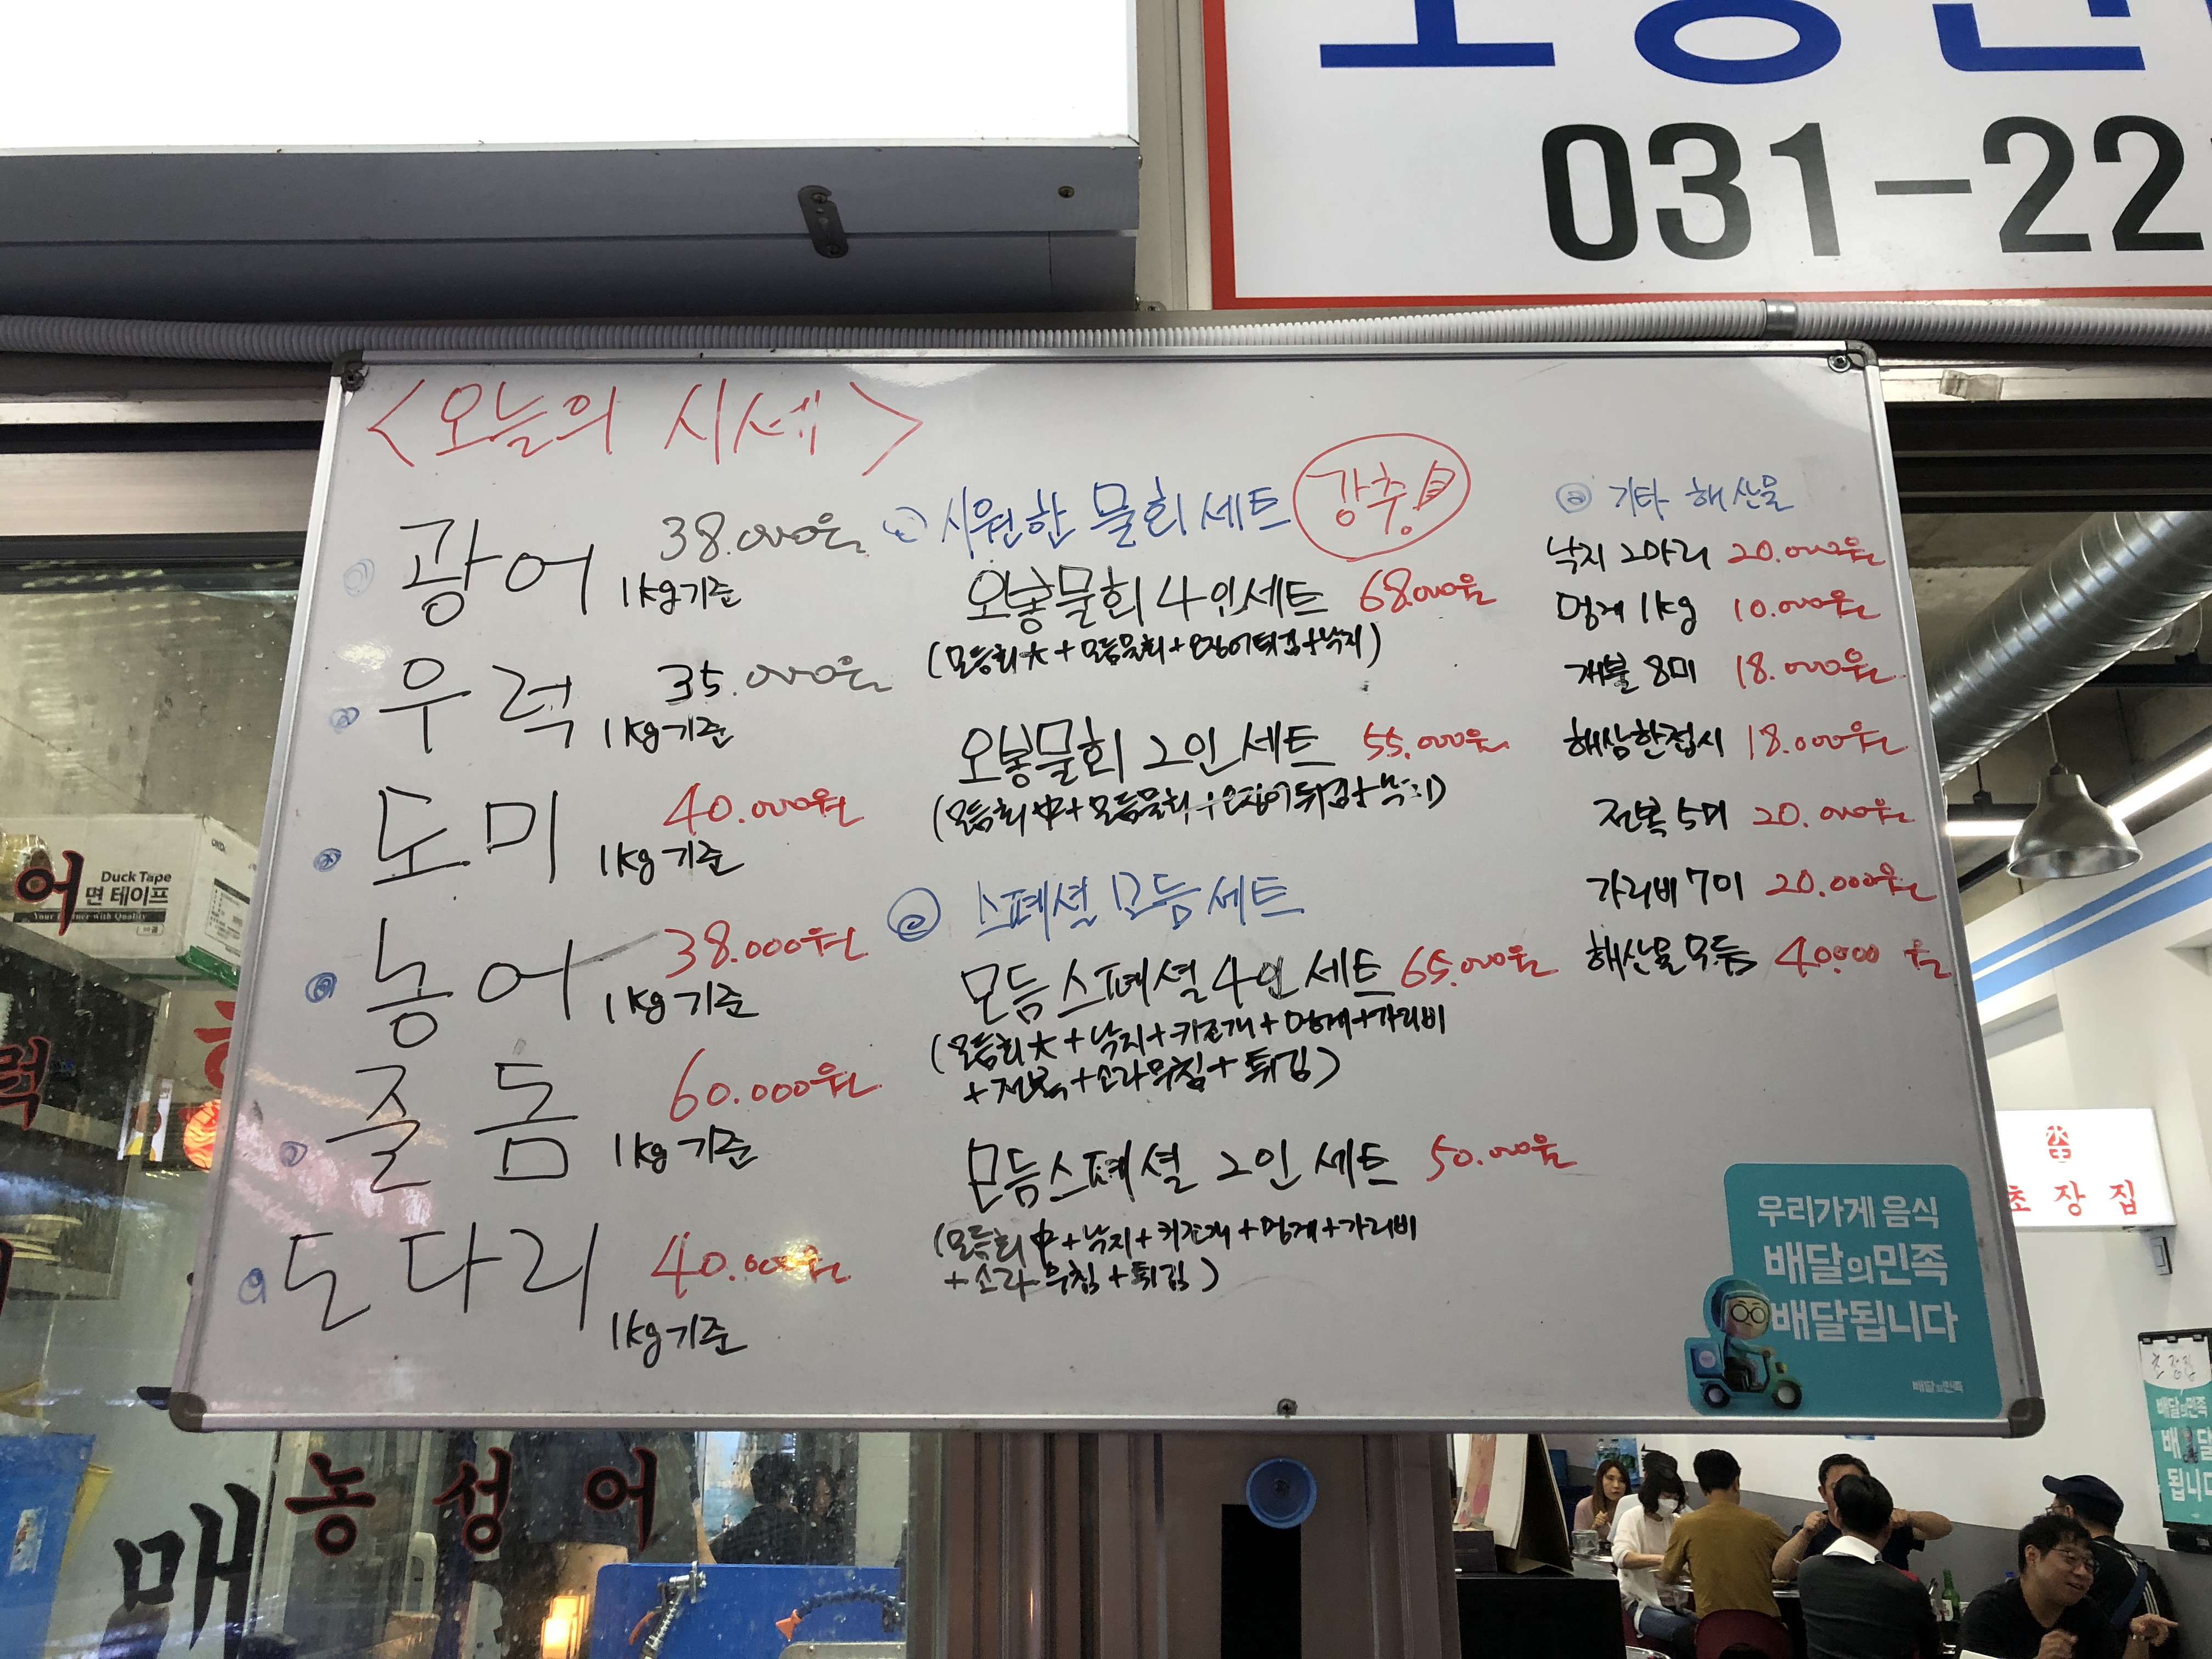 031-22
<오늘의 시세>
광어 38.000원
1kg 기준
우럭 35.000원
1kg 기준
도미 40.000원
1kg 기준
농어 38.000원
1kg 기준
줄돔 60.000원
1kg 기준
도다리 40.000원
1kg 기준
시원한 물회 세트 강추!
오봉물회 4인세트 68.000원
(모듬회大+모듬물회+오징어튀김+낙지)
오봉물회 2인세트 55.000원
(모듬회中+모듬물회+오징어튀김+낙지)
스폐셜 모듬세트
모듬스폐셜 4인세트 65.000원
(모듬회大+낙지+키조개+멍게+가리비
+전복+소라무침+튀김)
모듬스폐셜 2인세트 50.000원
(모듬회中+낙지+키조개+멍게+가리비
+소라무침+튀김)
기타 해산물
낙지 2마리 20.000원
멍게 1kg 10.000원
개불 8미 18.000원
해삼한접시 18.000원
전복 5미 20.000원
가리비 7미 20.000원
해산물모듬 40.000원
우리가게 음식
배달의민족
배달됩니다
배달의민족
Duck Tape
면 테이프
어
럭
초장집
농성어
매